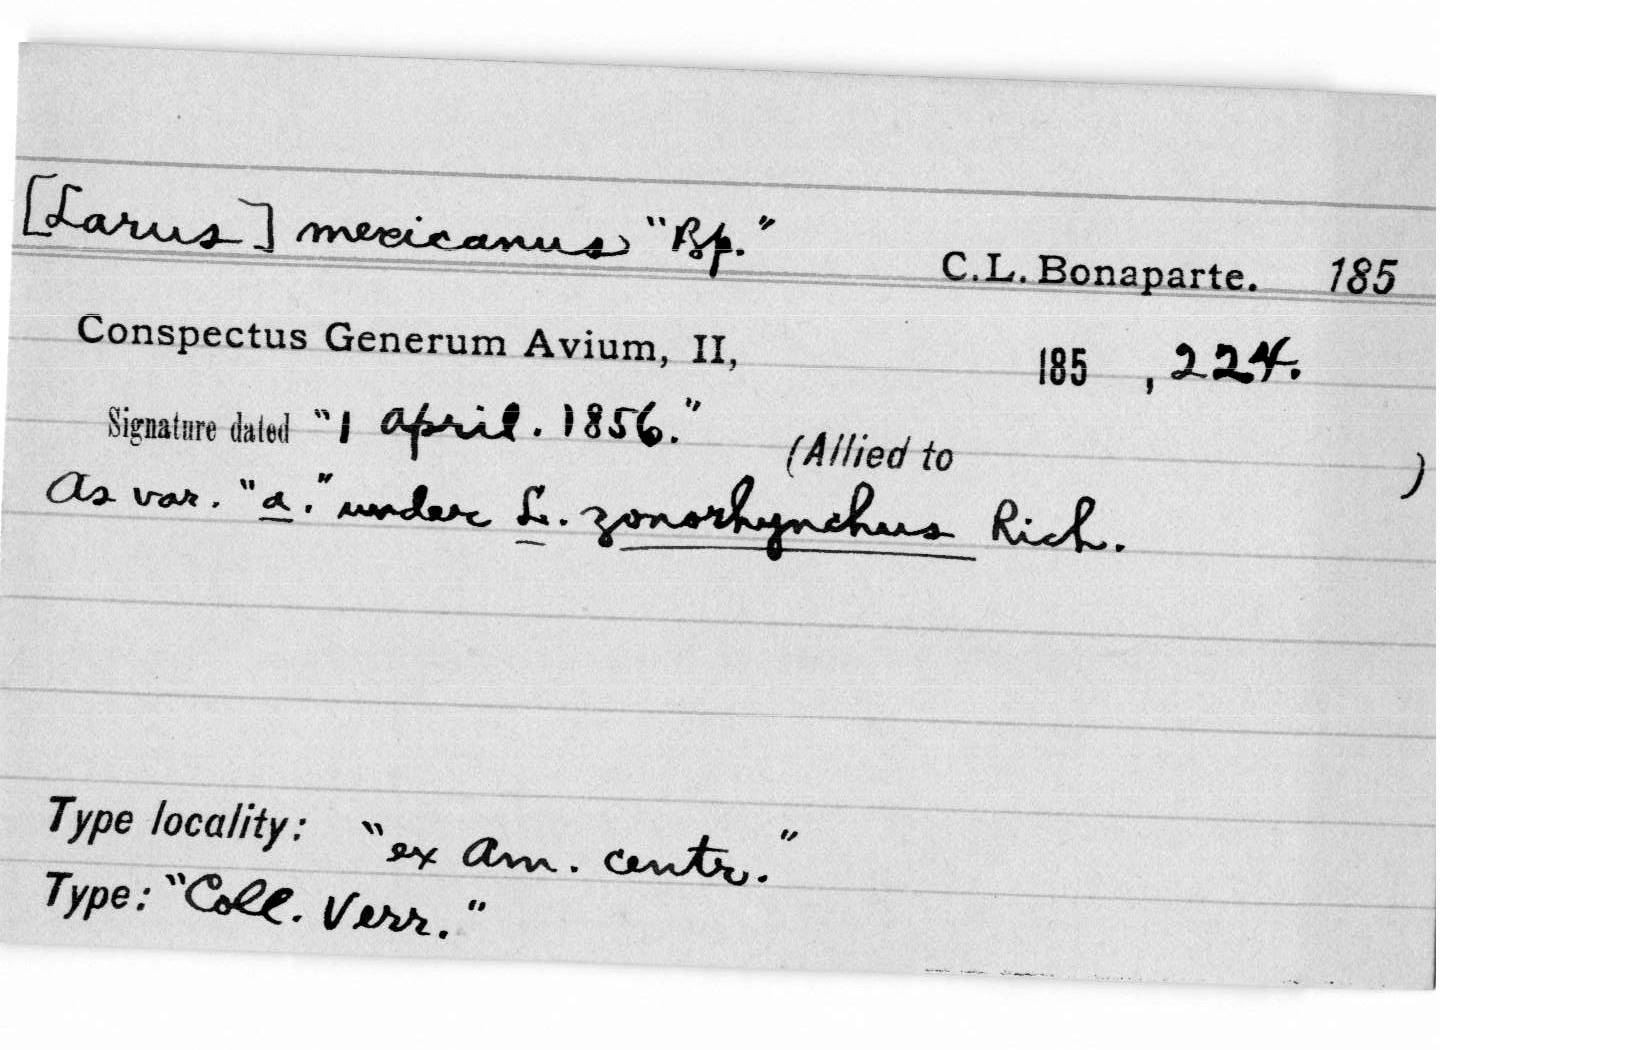 [Larus] mexicanus "Bp."
C.L. Bonaparte. 185
Conspectus Generum Avium, II, 185 , 224.
Signature dated "1 April. 1856." (Allied to )
As var. "a." under L. zonorhynchus Rich.
Type locality: "ex Am. centr."
Type: "Coll. Verr."